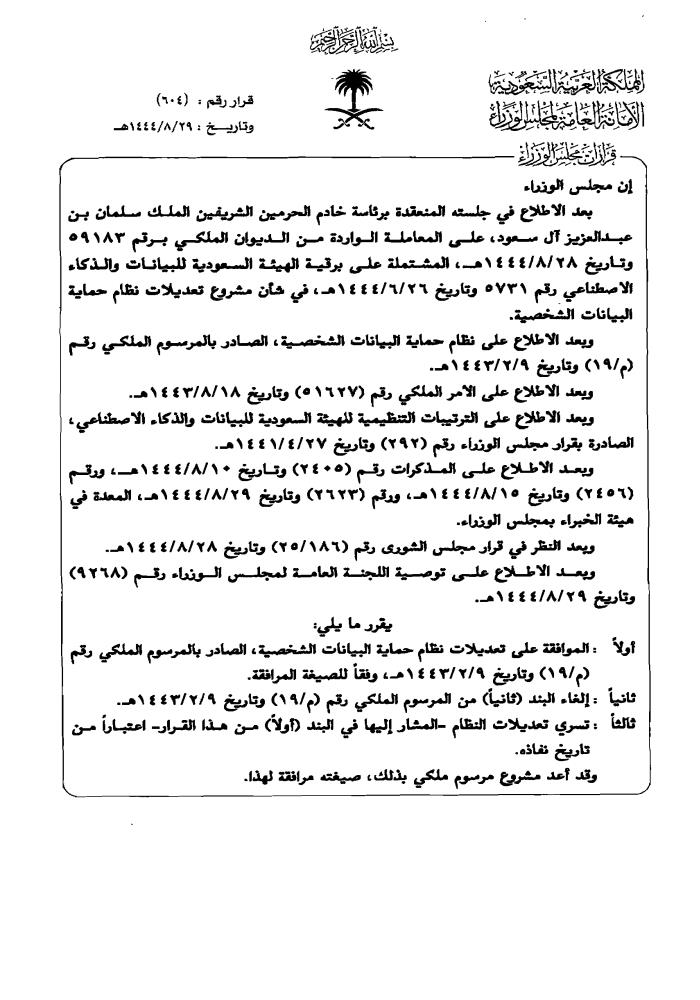 بسم الله الرحمن الرحيم
المملكة العربية السعودية
الأمانة العامة لمجلس الوزراء
قرار رقم : (٦٠٤)
وتاريخ : ١٤٤٤/٨/٢٩هـ
قرارات مجلس الوزراء
إن مجلس الوزراء
بعد الاطلاع في جلسته المنعقدة برئاسة خادم الحرمين الشريفين الملك سلمان بن
عبدالعزيز آل سعود، على المعاملة الواردة من الديوان الملكي برقم ٥٩١٨٣
وتاريخ ١٤٤٤/٨/٢٨هـ، المشتملة على برقية الهيئة السعودية للبيانات والذكاء
الاصطناعي رقم ٥٧٣١ وتاريخ ١٤٤٤/٦/٢٦هـ، في شأن مشروع تعديلات نظام حماية
البيانات الشخصية.
وبعد الاطلاع على نظام حماية البيانات الشخصية، الصادر بالمرسوم الملكي رقم
(م/١٩) وتاريخ ١٤٤٣/٢/٩هـ.
وبعد الاطلاع على الأمر الملكي رقم (٥١٦٢٧) وتاريخ ١٤٤٣/٨/١٨هـ.
وبعد الاطلاع على الترتيبات التنظيمية للهيئة السعودية للبيانات والذكاء الاصطناعي،
الصادرة بقرار مجلس الوزراء رقم (٢٩٢) وتاريخ ١٤٤١/٤/٢٧هـ.
وبعد الاطلاع على المذكرات رقم (٢٤٠٥) وتاريخ ١٤٤٤/٨/١٠هـ، ورقم
(٢٤٥٦) وتاريخ ١٤٤٤/٨/١٥هـ، ورقم (٢٦٢٣) وتاريخ ١٤٤٤/٨/٢٩هـ، المعدة في
هيئة الخبراء بمجلس الوزراء.
وبعد النظر في قرار مجلس الشورى رقم (٢٥/١٨٦) وتاريخ ١٤٤٤/٨/٢٨هـ.
وبعد الاطلاع على توصية اللجنة العامة لمجلس الوزراء رقم (٩٢٦٨)
وتاريخ ١٤٤٤/٨/٢٩هـ.
يقرر ما يلي:
أولاً : الموافقة على تعديلات نظام حماية البيانات الشخصية، الصادر بالمرسوم الملكي رقم
(م/١٩) وتاريخ ١٤٤٣/٢/٩هـ، وفقاً للصيغة المرافقة.
ثانياً : إلغاء البند (ثانياً) من المرسوم الملكي رقم (م/١٩) وتاريخ ١٤٤٣/٢/٩هـ.
ثالثاً : تسري تعديلات النظام -المشار إليها في البند (أولاً) من هذا القرار- اعتباراً من
تاريخ نفاذه.
وقد أعد مشروع مرسوم ملكي بذلك، صيغته مرافقة لهذا.